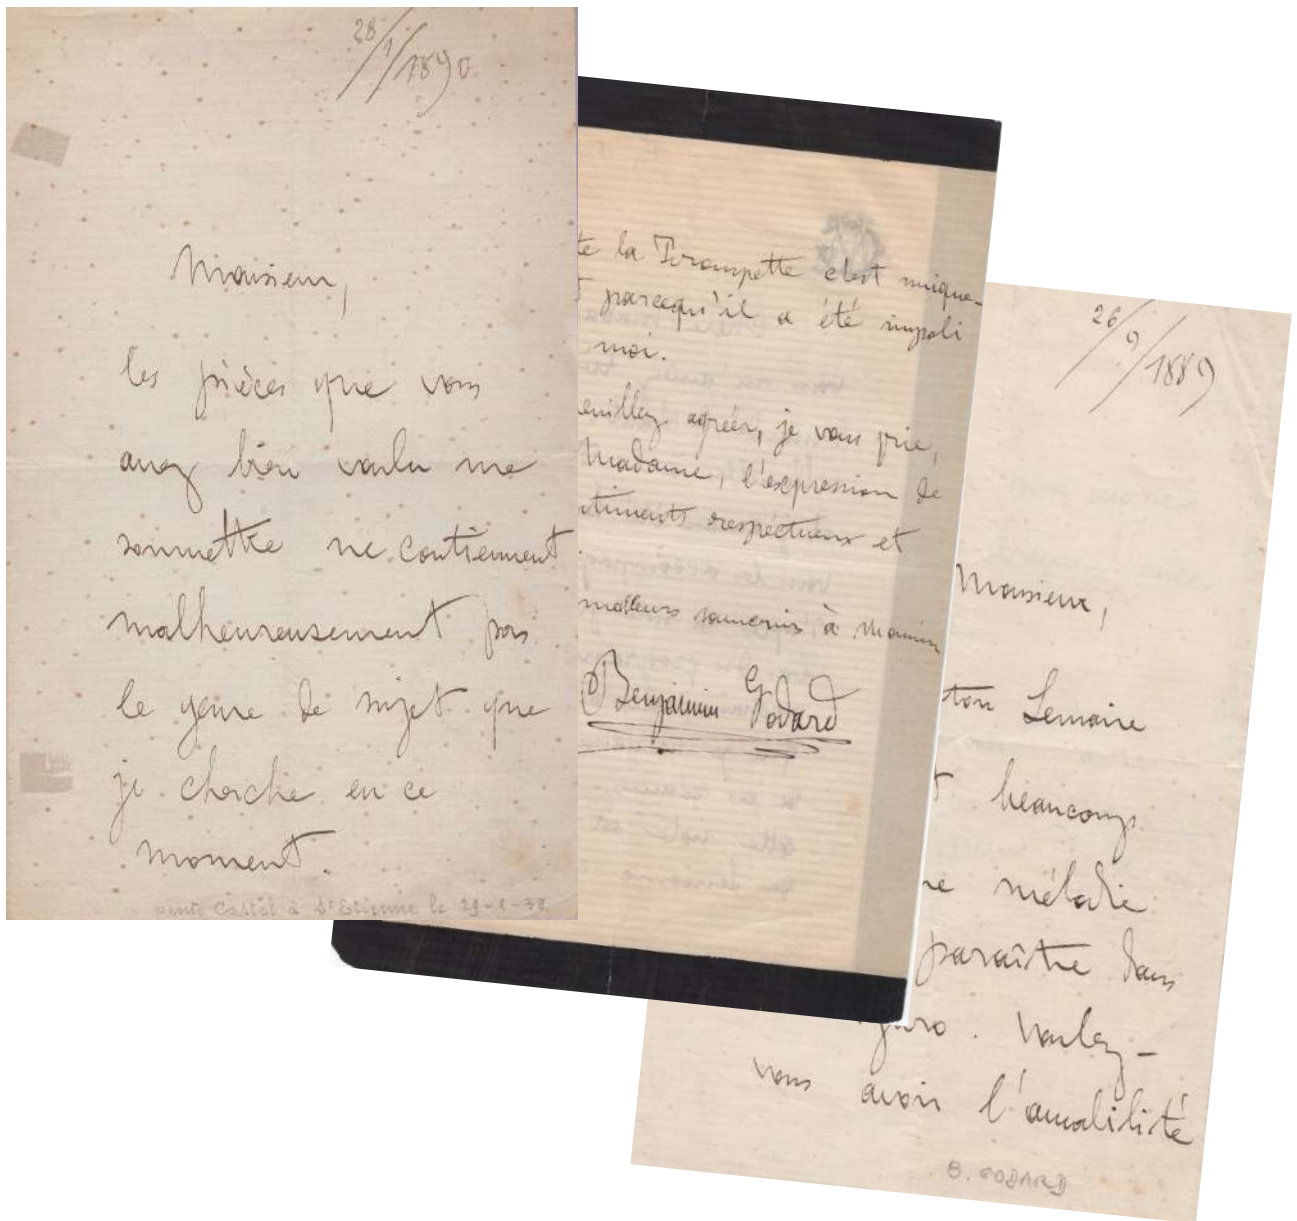 28/1/1890
Monsieur,
les pièces que vous
avez bien voulu me
soumettre ne contiennent
malheureusement pas
le genre de sujet que
je cherche en ce
moment.
vente Castel à St Etienne le 29-1-38
te la Trompette c'est unique-
parcequ'il a été impoli
moi.
euillez agréer, je vous prie,
Madame, l'expression de
ntiments respectueux et
meilleurs souvenirs à
Benjamin Godard
26/9/1889
Monsieur,
ton Lemaire
t beaucoup
ne mélodie
paraître dans
garo. Voulez-
vous avoir l'amabilité
B. GODARD